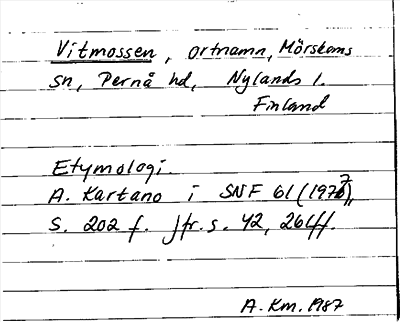 Vitmossen, ortnamn, Mörskoms
sn, Pernå hd, Nylands l.
Finland
Etymologi.
A. Kartano i SNF 61 (1977),
S. 202 f. Jfr. s. 42, 261 ff.
A. Km. 1987